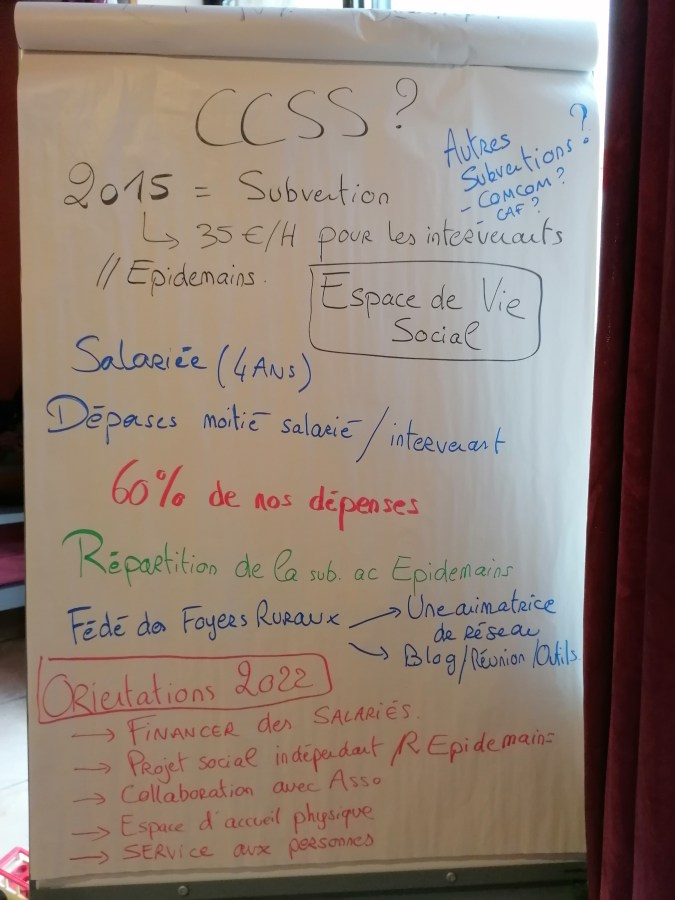 CCSS ?
Autres
Subventions ?
- COMCOM ?
CAF ?
2015 = Subvention
↳ 35 €/H pour les intervenants
// Epidemains.
Espace de Vie
Social
Salariée (4 ANS)
Dépenses moitié salarié / intervenant
60% de nos dépenses
Répartition de la sub. ac Epidemains
Fédé des Foyers Ruraux → Une animatrice
de réseau
→ Blog / Réunion / Outils.
Orientations 2022
→ FINANCER des SALARIÉS.
→ Projet social indépendant /R Epidemains
→ Collaboration avec Asso
→ Espace d'accueil physique
→ SERVICE aux personnes